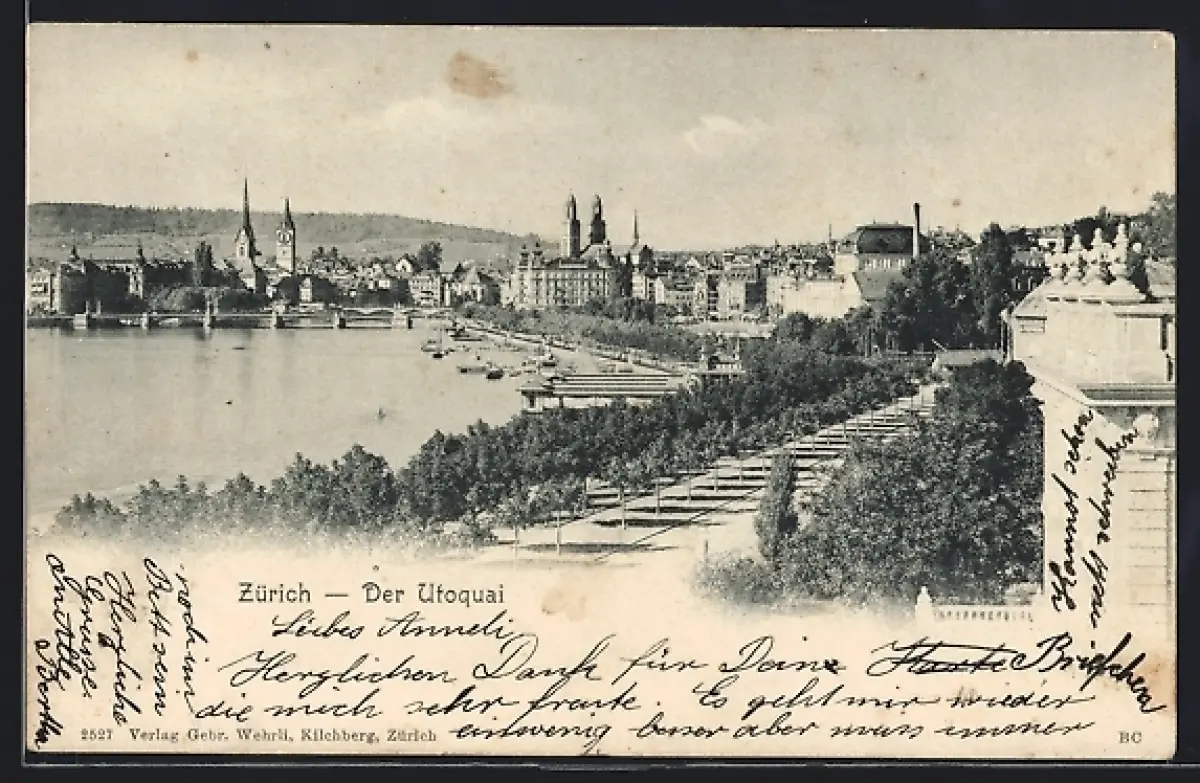 Zürich — Der Utoquai
Liebes Anneli
Herzlichen Dank für Deine Karte Briefchen
die mich sehr freute. Es geht mir wieder
einwenig besser aber muss immer
noch im
Bett sein
Herzliche
Grüsse.
Alle
Bertha
2527 Verlag Gebr. Wehrli, Kilchberg, Zürich
BC